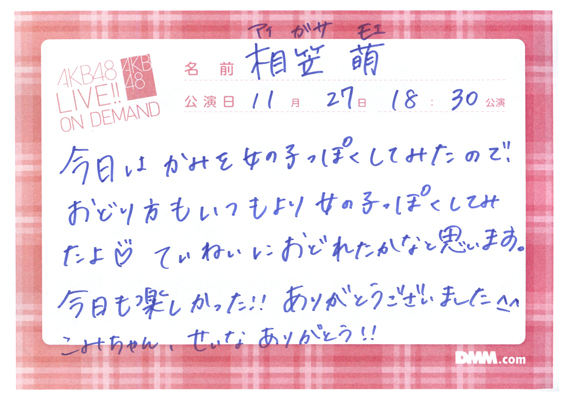 アイ がサ モエ
AKB48 LIVE!! ON DEMAND
AKB48
名前 相笠 萌
公演日 11月 27日 18:30公演
今日は かみを女の子っぽくしてみたので、
おどり方もいつもより女の子っぽくしてみ
たよ♡ ていねいにおどれたかなと思います。
今日も楽しかった!! ありがとうございました^^
こみちゃん、せいなありがとう!!
DMM.com